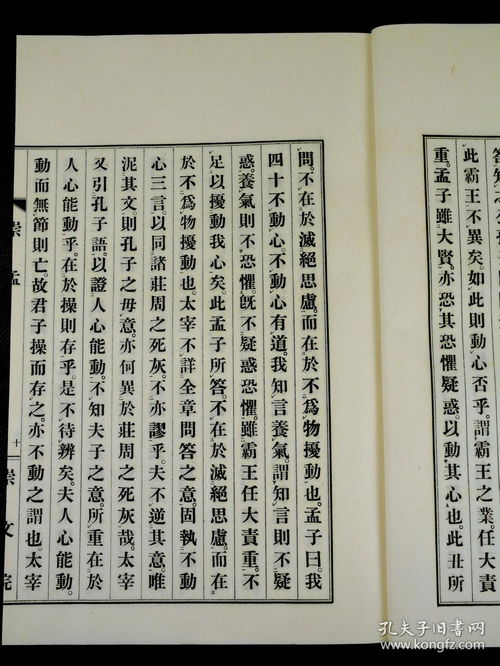 此霸王不異矣。如此則動心否乎。謂霸王之業。任大責
重。孟子雖大賢。亦恐其恐懼疑惑。以動其心也。此丑所
問。不在於滅絕思慮。而在於不爲物擾動也。孟子曰。我
四十不動心。不動心有道。我知言養氣。謂知言則不疑
惑。養氣則不恐懼。旣不疑惑恐懼。雖霸王任大責重。不
足以擾動我心矣。此孟子所答。不在於滅絕思慮。而在
於不爲物擾動也。太宰不詳全章問答之意。固執不動
心三言。以同諸莊周之死灰。不亦謬乎。夫不逆其意。唯
泥其文。則孔子之毋意。亦何異於莊周之死灰哉。太宰
又引孔子語。以證人心能動。不知夫子之意。所重在於
人心能動乎。在於操則存乎。是不待辨矣。夫人心能動。
動而無節則亡。故君子操而存之。亦不動之謂也。太宰
崇孟
十
崇文院
孔夫子旧书网
www.kongfz.com